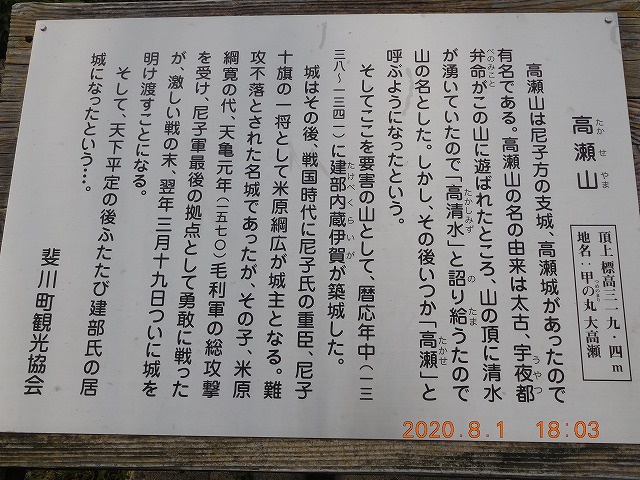 高瀬山
たかせやま
頂上 標高三一九・四m
地名：甲の丸 大高瀬
高瀬山は尼子方の支城、高瀬城があったので
有名である。高瀬山の名の由来は太古、宇夜都
うやつ
弁命がこの山に遊ばれたところ、山の頂に清水
べのみこと
が湧いていたので「高清水」と詔り給うたので
たかしみず
のたま
山の名とした。しかし、その後いつか「高瀬」と
たかせ
呼ぶようになったという。
そしてここを要害の山として、暦応年中（一三
三八〜一三四一）に建部内蔵伊賀が築城した。
たけべくらいが
城はその後、戦国時代に尼子氏の重臣、尼子
十旗の一将として米原綱広が城主となる。難
攻不落とされた名城であったが、その子、米原
綱寛の代、天亀元年（一五七〇）毛利軍の総攻撃
を受け、尼子軍最後の拠点として勇敢に戦った
が、激しい戦の末、翌年三月十九日ついに城を
明け渡すことになる。
そして、天下平定の後ふたたび建部氏の居
城になったという…。
斐川町観光協会
2020.8.1 18:03